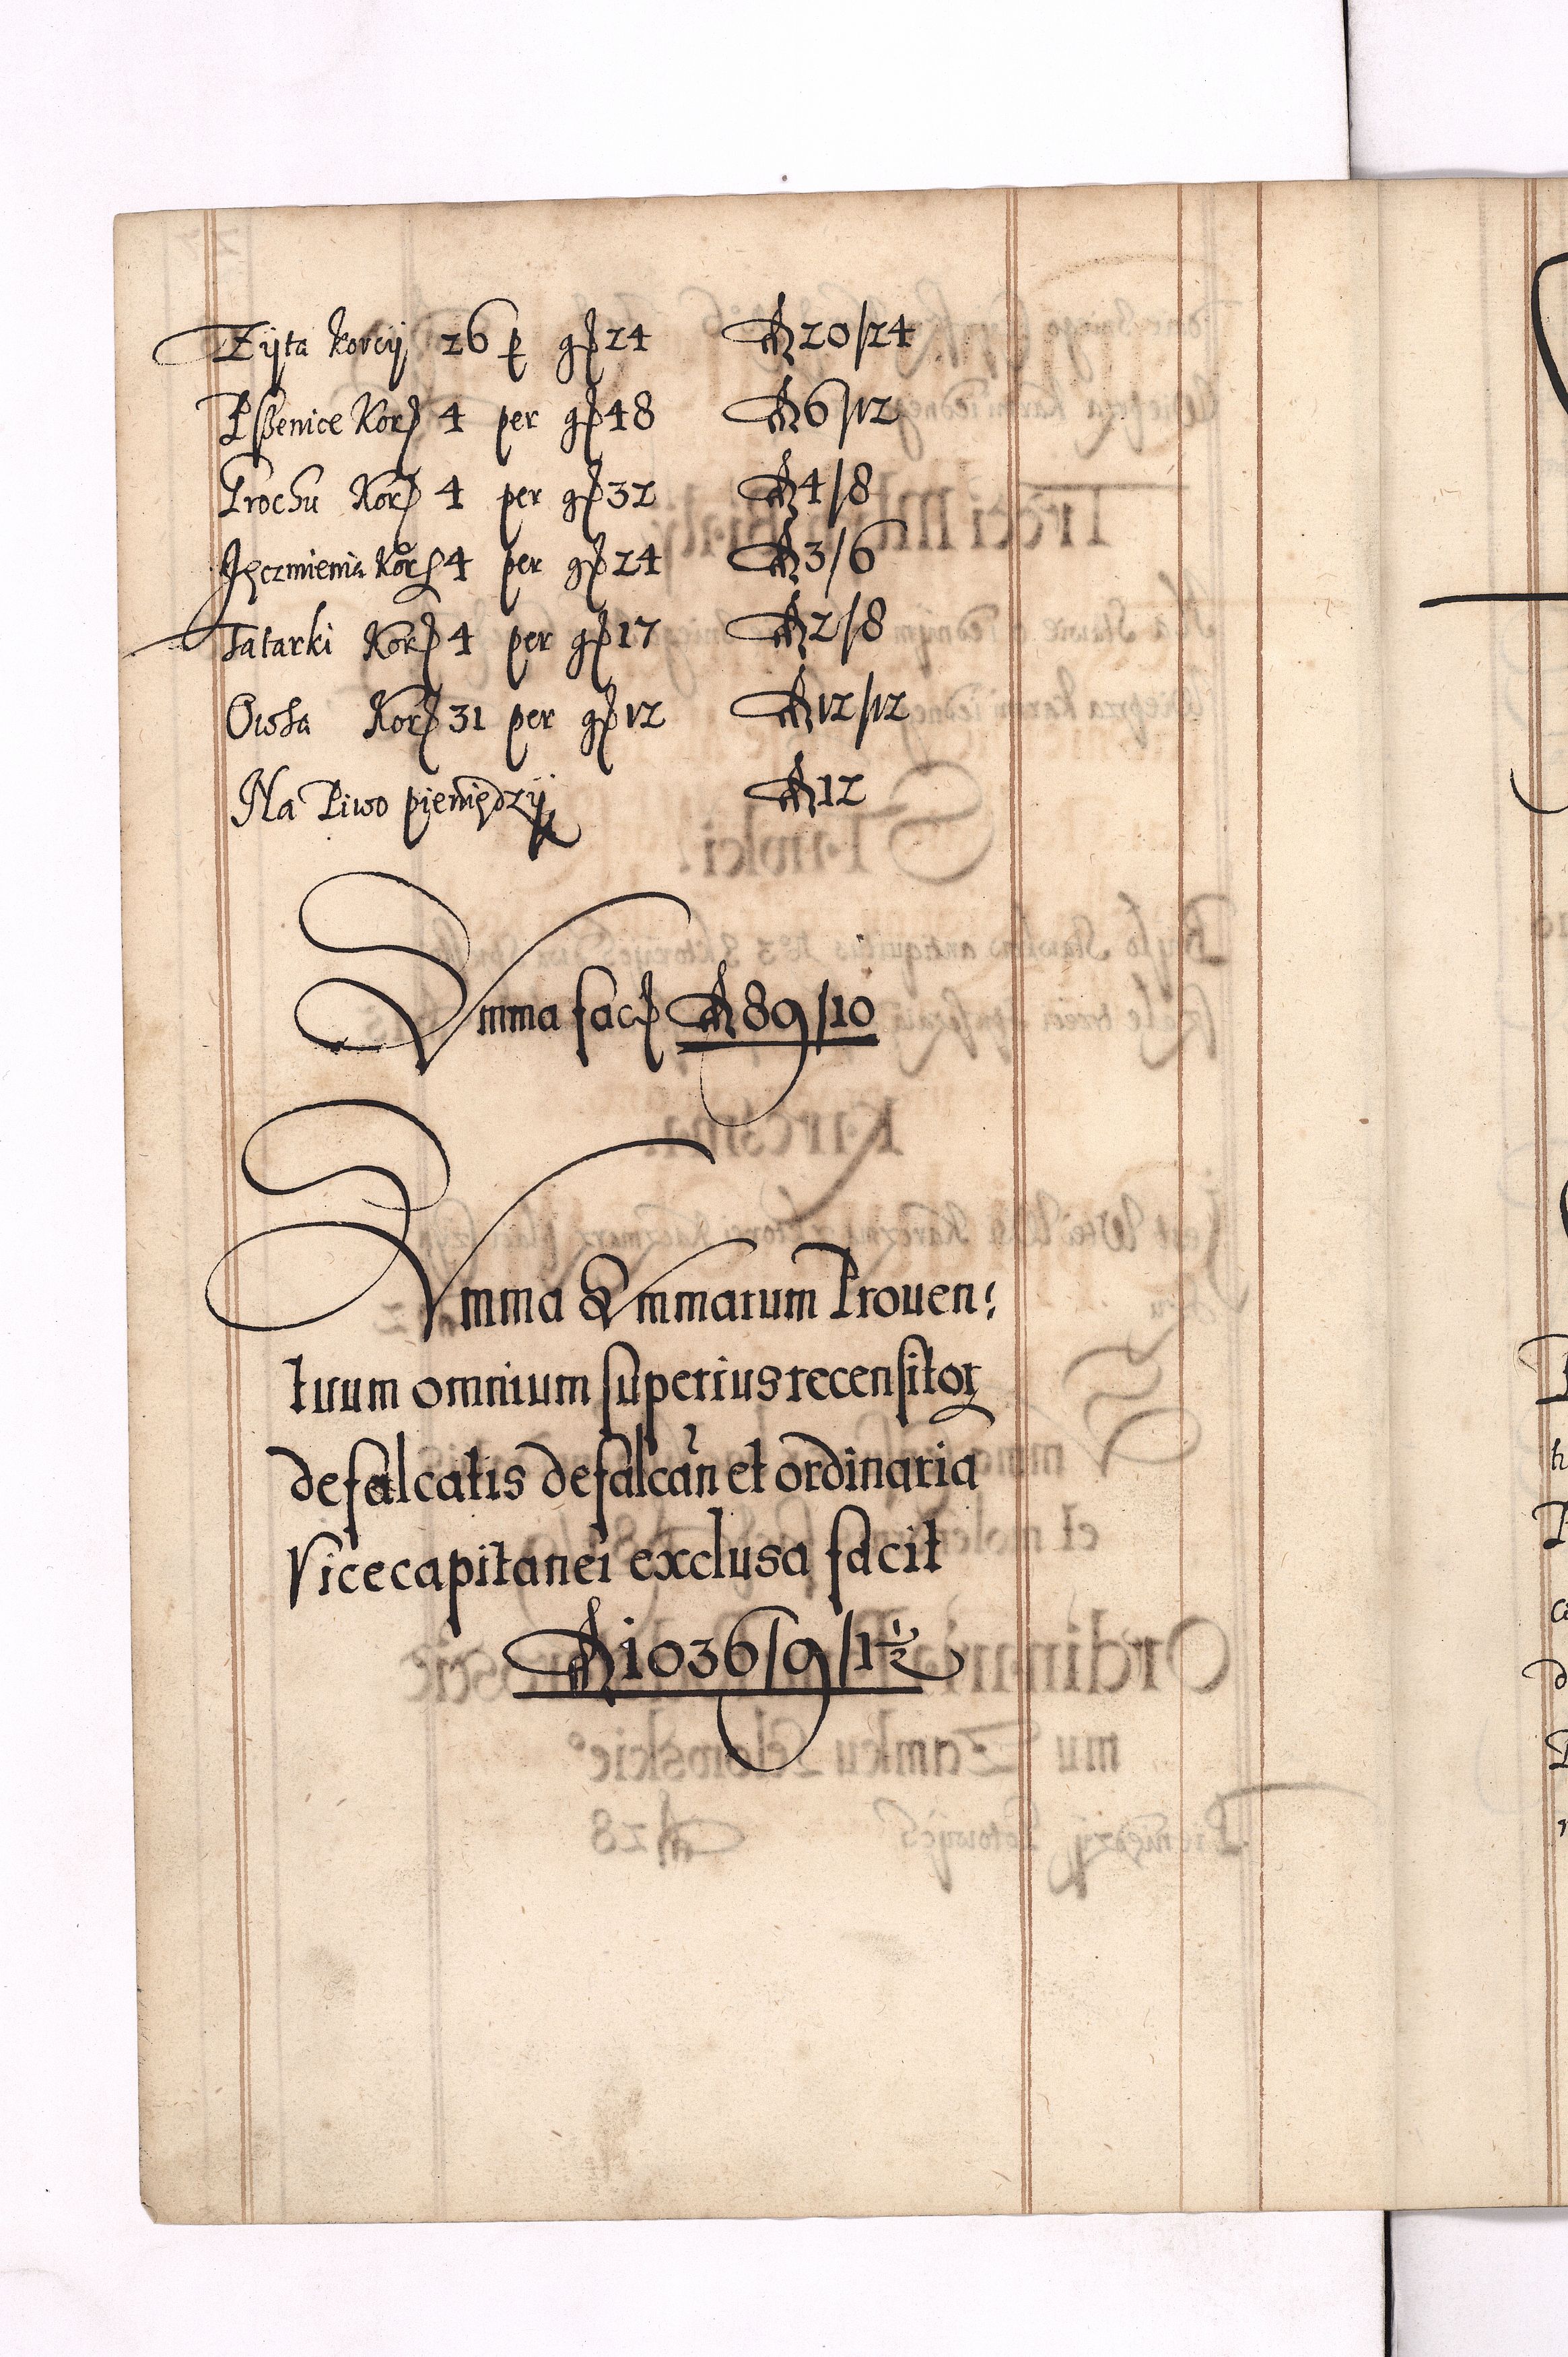 Zÿta korcÿ 26 per gr 24 fl 20/24
Pssenice Kor 4 per gr 48 fl 6/12
Grochu Kor 4 per gr 32 fl 4/8
Jęczmienia kor 4 per gr 24 fl 3/6
Tatarki Kor 4 per gr 17 fl 2/8
Owsa Kor 31 per gr 12 fl 12/12
Na Piwo pieniędzÿ fl 12
Summa facit fl 89/10
Summa Summarum Prouen:
tuum omnium superius recensitor
defalcatis defalcan et ordinaria
Vicecapitanei exclusa facit
fl 1036/9/1½